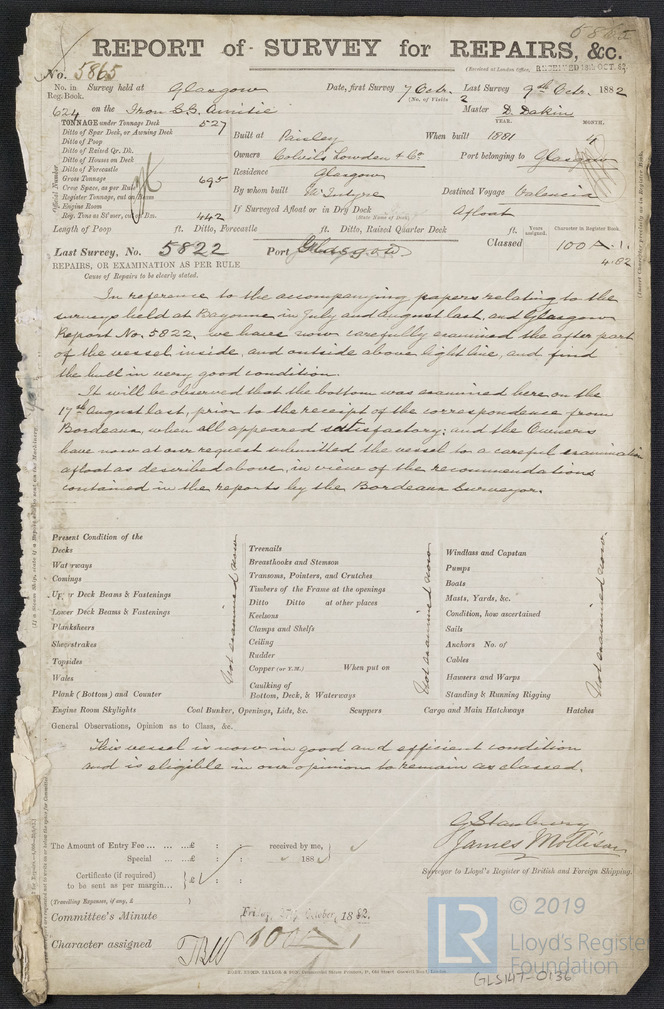 REPORT of SURVEY for REPAIRS, &c.
No. 5865
(Received at London Office, RECEIVED 18th OCT. 82
No. in Reg. Book. Survey held at Glasgow Date, first Survey 7 Octr. Last Survey 9th Octr. 1882
(No. of Visits 2
624 on the Iron S.S. Amitie Master D. Dakin
TONNAGE under Tonnage Deck 527
Ditto of Spar Deck, or Awning Deck
Ditto of Poop
Ditto of Raised Qr. Dk.
Ditto of Houses on Deck
Ditto of Forecastle
Gross Tonnage 695
Crew Space, as per Rule
Register Tonnage, cut on Beam
Engine Room
Reg. Tons as St'mer, cut on Bm. 442
Official Number
Built at Paisley When built YEAR. 1881 MONTH. 4
Owners Colvils Lowden & Co Port belonging to Glasgow
Residence Glasgow
By whom built McIntyre Destined Voyage Valencia
If Surveyed Afloat or in Dry Dock Afloat
(State Name of Dock)
Length of Poop ft. Ditto, Forecastle ft. Ditto, Raised Quarter Deck ft.
Classed Years assigned. Character in Register Book. 100A.1.
4.82
Last Survey, No. 5822 Port Glasgow
REPAIRS, OR EXAMINATION AS PER RULE
Cause of Repairs to be clearly stated.
In reference to the accompanying papers relating to the
surveys held at Bayonne in July and August last, and Glasgow
Report No. 5822, we have now carefully examined the after part
of the vessel inside, and outside above light line, and find
the hull in very good condition.
It will be observed that the bottom was examined here on the
17th August last, prior to the receipt of the correspondence from
Bordeaux, when all appeared satisfactory; and the Owners
have now at our request submitted the vessel to a careful examination
afloat as described above, in view of the recommendations
contained in the reports by the Bordeaux Surveyor.
Present Condition of the
Decks
Waterways
Comings
Upper Deck Beams & Fastenings
Lower Deck Beams & Fastenings
Planksheers
Sheerstrakes
Topsides
Wales
Plank (Bottom) and Counter
Not examined now
Treenails
Breasthooks and Stemson
Transoms, Pointers, and Crutches
Timbers of the Frame at the openings
Ditto Ditto at other places
Keelsons
Clamps and Shelfs
Ceiling
Rudder
Copper (or Y.M.) When put on
Caulking of Bottom, Deck, & Waterways
Not examined now
Windlass and Capstan
Pumps
Boats
Masts, Yards, &c.
Condition, how ascertained
Sails
Anchors No. of
Cables
Hawsers and Warps
Standing & Running Rigging
Not examined now.
Engine Room Skylights Coal Bunker, Openings, Lids, &c. Scuppers Cargo and Main Hatchways Hatches
General Observations, Opinion as to Class, &c.
This vessel is now in good and efficient condition
and is eligible in our opinion to remain as classed.
G Stanbury
James Mollison
Surveyor to Lloyd's Register of British and Foreign Shipping.
The Amount of Entry Fee ... £ : : received by me,
Special ... £ : : 188
Certificate (if required) to be sent as per margin... £ : :
(Travelling Expenses, if any, £ )
Committee's Minute Friday, October, 1882.
Character assigned 100A1
© 2019
LR
Lloyd's Register
Foundation
GLS147-0136